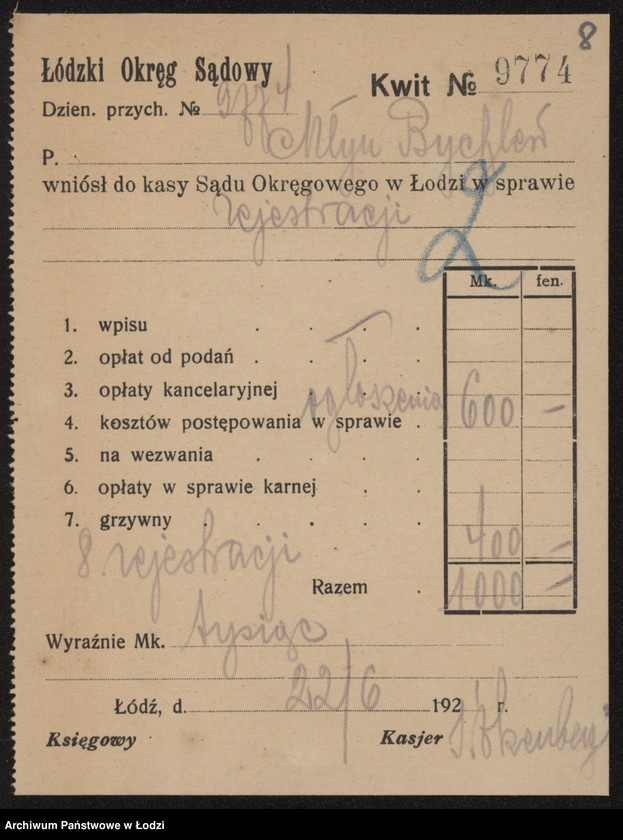 8
Łódzki Okręg Sądowy
Kwit № 9774
Dzien. przych. № 9774
P. Młyn Bychleń
wniósł do kasy Sądu Okręgowego w Łodzi w sprawie
rejestracji
2
Mk. fen.
1. wpisu . . . .
2. opłat od podań . . . .
3. opłaty kancelaryjnej . . .
ogłoszenia 600 —
4. kosztów postępowania w sprawie .
5. na wezwania . . . .
6. opłaty w sprawie karnej . .
7. grzywny . . . .
8. rejestracji 400 —
Razem . 1000 —
Wyraźnie Mk. tysiąc
Łódź, d. 22/6 192 r.
Księgowy Kasjer
Archiwum Państwowe w Łodzi